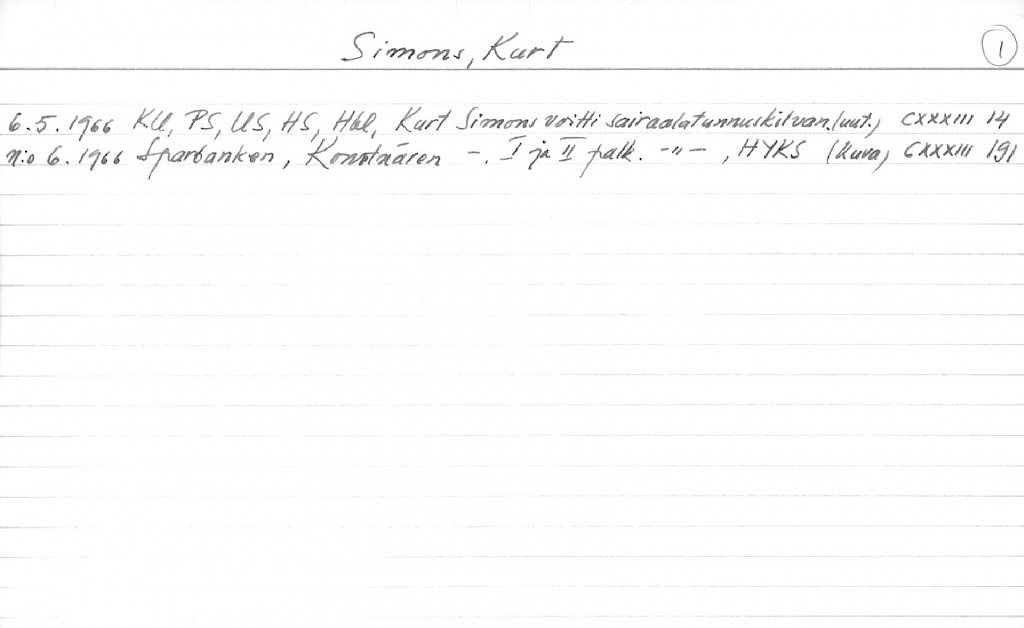 Simons, Kurt 1
6.5.1966 KU, PS, US, HS, Hbl, Kurt Simons voitti sairaalatunnuskilvan. (uut.) CXXXIII 14
n:o 6.1966 Sparbanken, Konstnären –. I ja II palk. –"– , HYKS (Kuva) CXXXIII 191